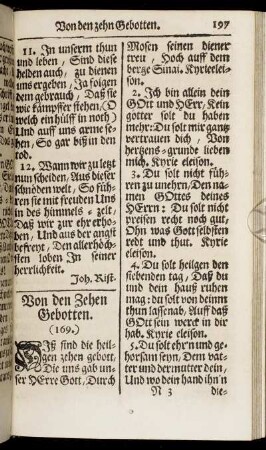 Von den zehn Gebotten. 197
11. In unserm thun
und leben, Sind diese
helden auch, zu dienen
uns ergeben, Ja folgen
dem gebrauch, Daß sie
wie kämpffer stehen, (O
welch ein hülff in noth)
Und auff uns arme se-
hen, So gar biß in den
tod.
12. Wann wir zu letzt
nun scheiden, Aus dieser
schnöden welt, So füh-
ren sie mit freuden Uns
in des himmels-zelt,
Daß wir zur ehr erho-
ben, Und aus der angst
befreyt, Den allerhöch-
sten loben In seiner
herrlichkeit.
Joh. Rist.
Von den Zehen
Gebotten.
(169.)
Diß sind die heil-
gen zehen gebott,
Die uns gab un-
ser HErre Gott, Durch
Mosen seinen diener
treu, Hoch auff dem
berge Sinai. Kyrielei-
son.
2. Ich bin allein dein
GOtt und HErr, Kein
götter solt du haben
mehr: Du solt mir gantz
vertrauen dich, Von
hertzens-grunde lieben
mich. Kyrie eleison.
3. Du solt nicht füh-
ren zu unehrn, Den na-
men GOttes deines
HErrn: Du solt nicht
preisen recht noch gut,
Ohn was Gott selbsten
redt und thut. Kyrie
eleison.
4. Du solt heilgen den
siebenden tag, Daß du
und dein hauß ruhen
mag: du solt von deinm
thun lassen ab, Auff daß
GOtt sein werck in dir
hab. Kyrie eleison.
5. Du solt ehr'n und ge-
horsam seyn, Dem vat-
ter und der mutter dein,
Und wo dein hand ihn'n
N 3 die-